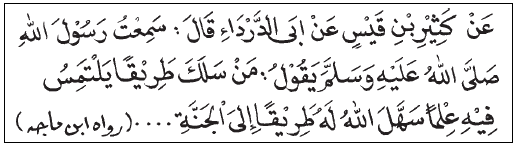 عَنْ كَثِيْرِ بْنِ قَيْسٍ عَنْ اَبِی الدَّرْدَاءِ قَالَ: سَمِعْتُ رَسُوْلَ اللهِ
صَلَّی اللهُ عَلَيْهِ وَسَلَّمَ يَقُوْلُ: مَنْ سَلَكَ طَرِيْقًا يَلْتَمِسُ
فِيْهِ عِلْمًا سَهَّلَ اللهُ لَهُ طَرِيْقًا اِلَی الْجَنَّةِ .... (رواه ابن ماجه)